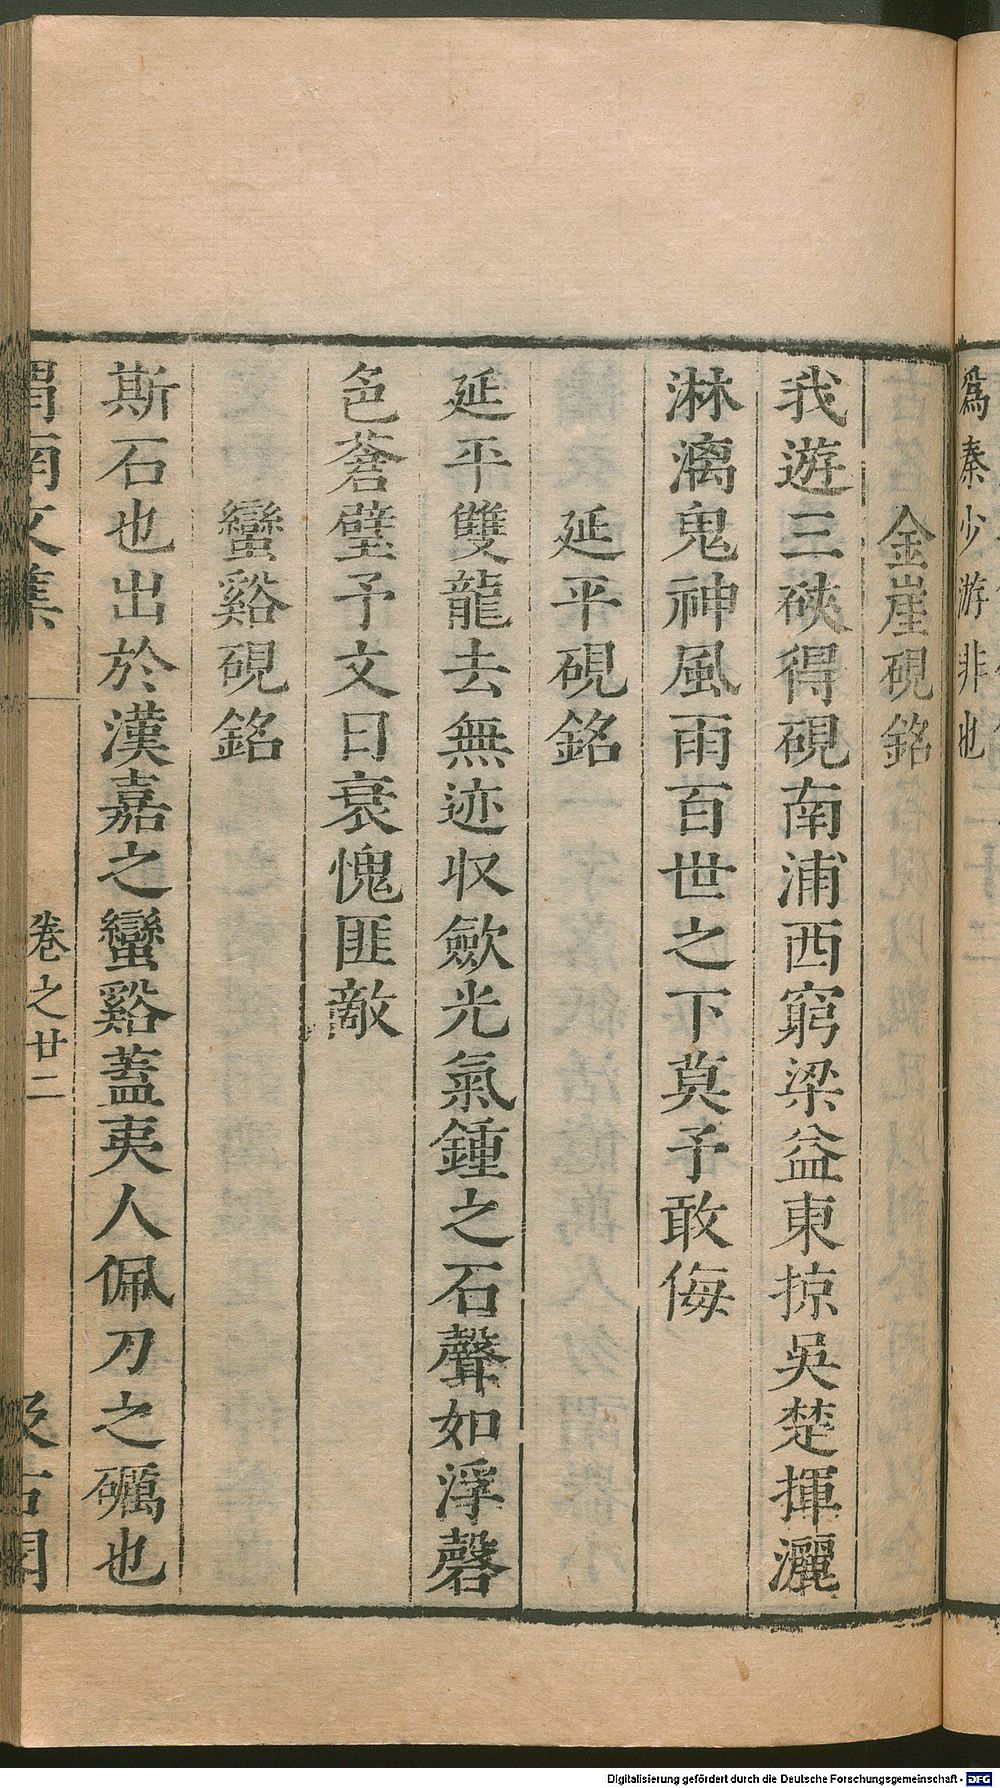 爲秦少游非也
金崖硯銘
我遊三硤得硯南浦西窮梁益東掠吳楚揮灑
淋漓鬼神風雨百世之下莫予敢侮
延平硯銘
延平雙龍去無迹収歛光氣鍾之石聲如浮磬
色蒼璧予文日衰愧匪敵
蠻谿硯銘
斯石也出於漢嘉之蠻谿蓋夷人佩刀之礪也
渭南文集 卷之廿二 汲古閣
Digitalisierung gefördert durch die Deutsche Forschungsgemeinschaft - DFG